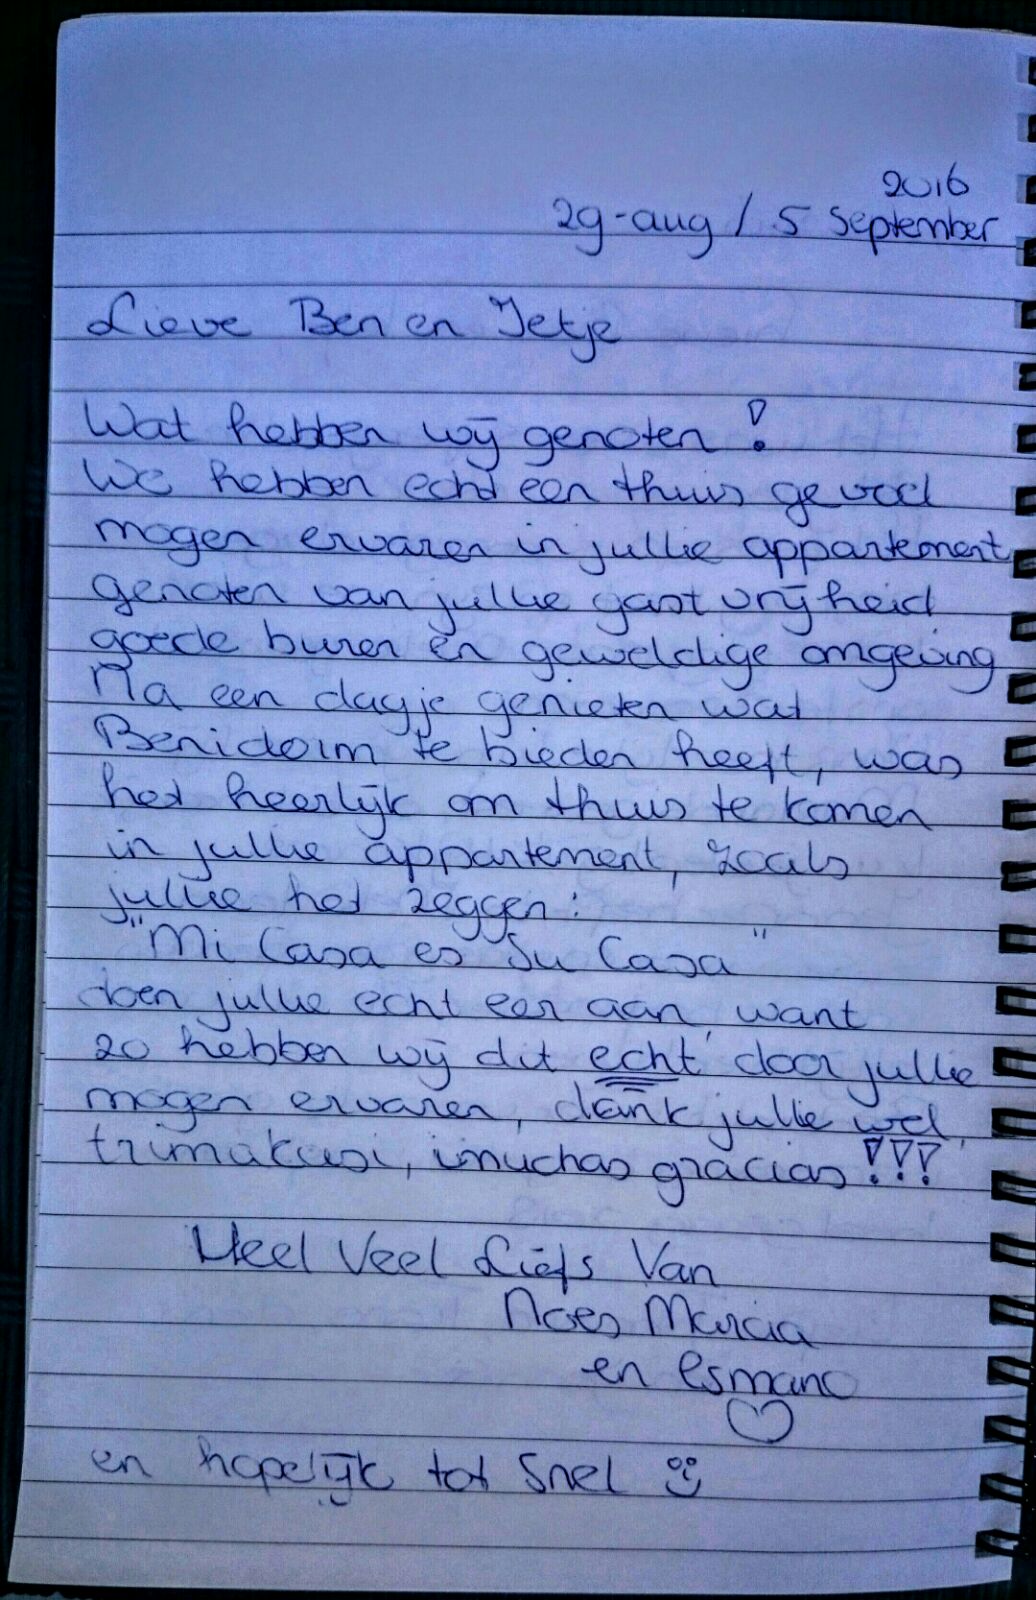 2016
29-aug / 5 September
Lieve Ben en Jetje
Wat hebben wij genoten !
We hebben echt een thuis gevoel
mogen ervaren in jullie appartement
genoten van jullie gastvrijheid
goede buren en geweldige omgeving
Na een dagje genieten wat
Benidorm te bieden heeft, was
het heerlijk om thuis te komen
in jullie appartement, zoals
jullie het zeggen:
"Mi Casa es Su Casa"
doen jullie echt eer aan, want
zo hebben wij dit echt door jullie
mogen ervaren, dank jullie wel,
trimakasi, muchas gracias !!!
Heel Veel Liefs Van
Noes Marcia
en
en hopelijk tot Snel